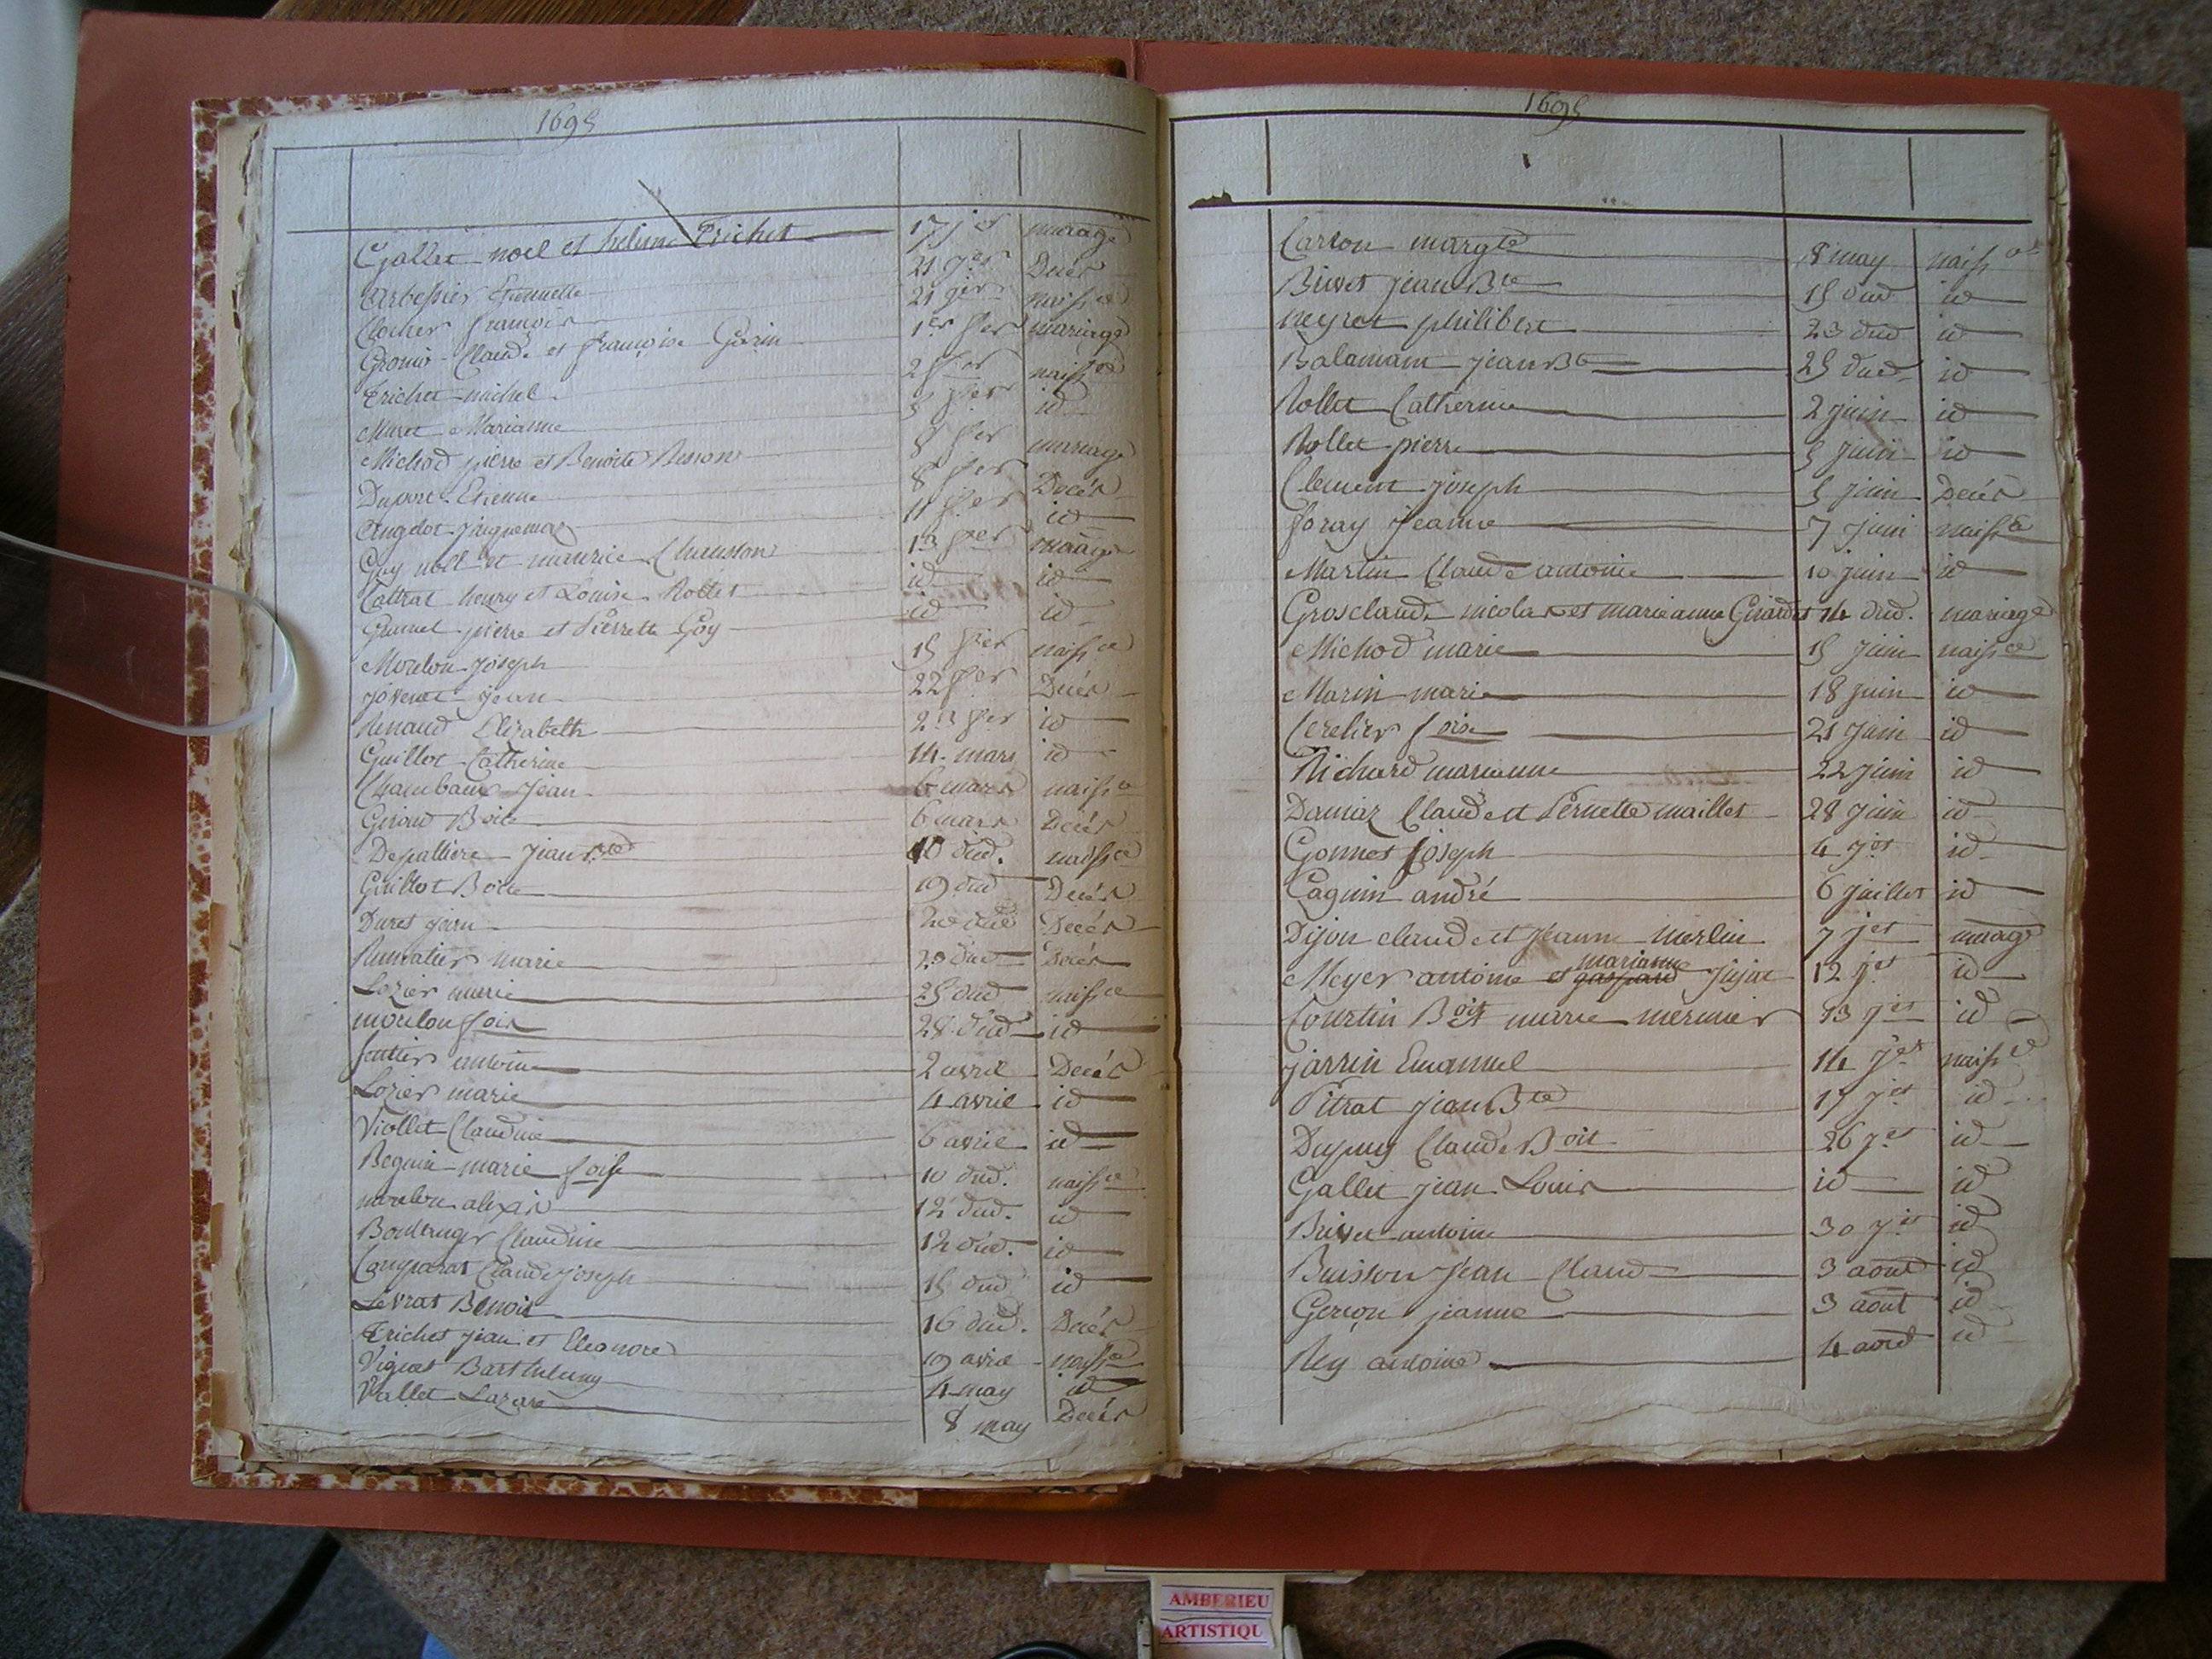 1695
Gallet noel et helene Trichet 17 jer mariage
Arbessier Etiennette 21 jer Decés
Clocher françois 21 jer naissce
Gromo Claude et françoise Gorin 1er fer mariage
Trichet michel 2 fer naissce
Muret Marianne 5 fer id
Michod pierre et Benoite Besson 8 fer mariage
Duport Etienne 8 fer Decés
Angelot 11 fer id
Goy noel et maurice Chauston 13 fer maage
Cottrat henry et Louise Rollet id id
Grumel pierre et Pierrette Goy id id
Moulon Joseph 15 fer naissce
jovenet jean 22 fer Decés
Renaud Elizabeth 23 fer id
Guillot Catherine 14 mars id
Chambaux Jean 6 mars naissce
Giroud Boite 6 mars Decés
Depalliere Jean Bte 10 dud. naissce
Guillot Boite 19 dud Decés
Duret jean 20 dud Decés
marie 20 dud Decés
Lozier marie 25 dud naissce
moulon foise 28 dud id
antoine 2 avril Decés
Lozier marie 4 avril id
Viollet Claudine 6 avril id
Beguin marie foise 10 dud. naissce
moulon alexis 12 dud. id
Boullanger Claudine 12 dud. id
Comparat Claude joseph 15 dud id
Levrat Benoit 16 dud. Decés
Trichet jean et Eleonore 19 avril naissce
Viguet Barthelemy 4 may id
Vallet Lazare 8 may Decés
1695
Carron margte 8 may naissce
Brivet jean Bte 15 dud id
neyret philibert 23 dud id
Balamam jean Bte 25 dud id
Rollet Catherine 2 juin id
Rollet pierre 5 juin id
Clement joseph 5 juin Decés
foray jeanne 7 juin naissce
Martin Claude antoine 10 juin id
Grosclaude nicolas et marieanne Girardet 14 dud. mariage
Michod marie 15 juin naissce
Marin marie 18 juin id
Cerelier foise 21 juin id
Richard marianne 22 juin id
Damiaz Claude et Pernette maillet 28 juin id
Gonnet Joseph 4 jet id
Caguin andré 6 juillet id
Dijon claude et jeanne merlin 7 jet maage
marianne
Meyer antoine et gaspard Jujat 12 jet id
Courtin Boit et marie mermier 13 jet id
jarrin Emanuel 14 jet naissce
Pitrat jean Bte 17 jet id
Dupuy Claude Boit 26 jet id
Gallet jean Louis id id
Brivet antoine 30 jet id
Buisson Jean Claude 3 aout id
Gerson jeanne 3 aout id
Rey antoine 4 aout id
AMBERIEU
ARTISTIQU